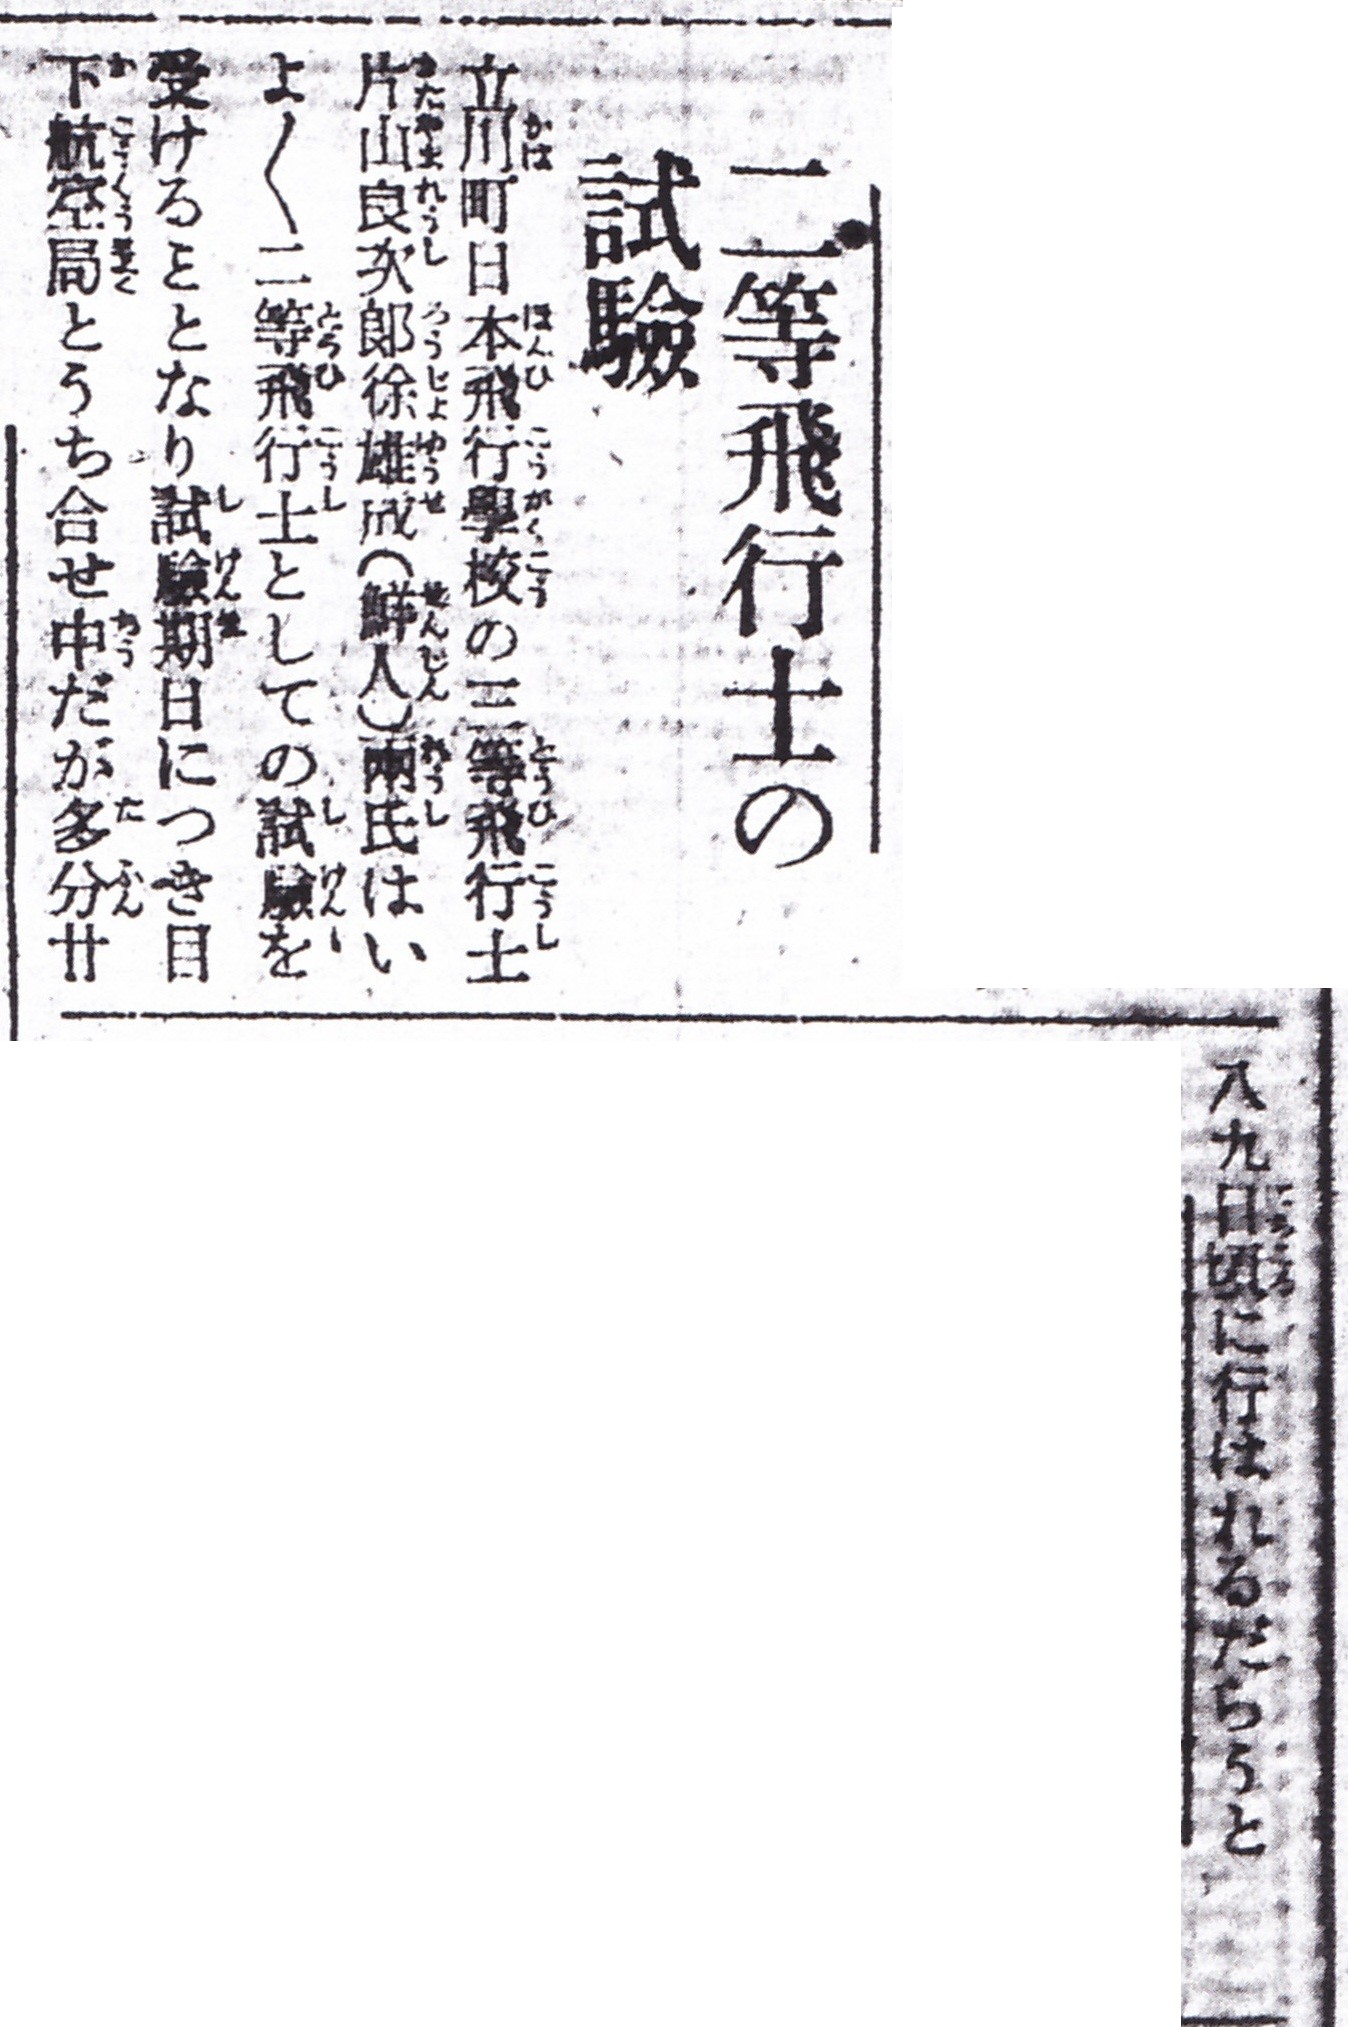 二等飛行士の
試驗
立川町日本飛行學校の三等飛行士
片山良次郎徐雄成(鮮人)兩氏はい
よ〱二等飛行士としての試驗を
受けることとなり試驗期日につき目
下航空局とうち合せ中だが多分廿
八九日頃に行はれるだらうと